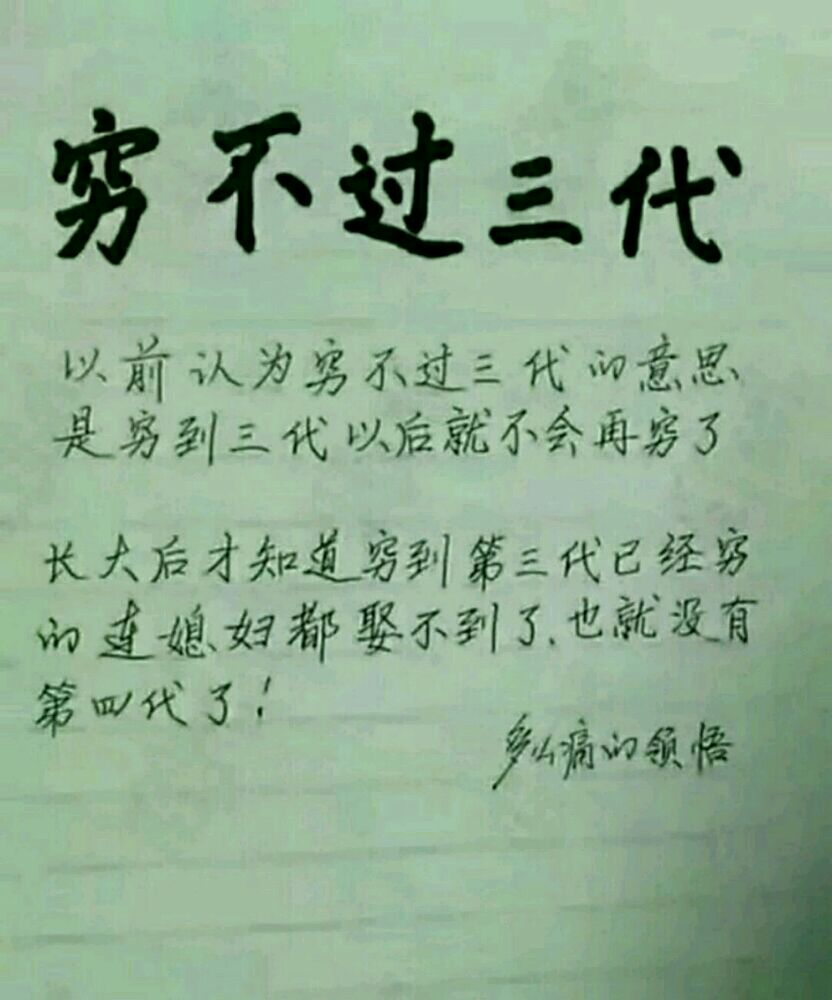 穷不过三代
以前认为穷不过三代的意思
是穷到三代以后就不会再穷了
长大后才知道穷到第三代已经穷
的连媳妇都娶不到了.也就没有
第四代了!
多么痛的领悟